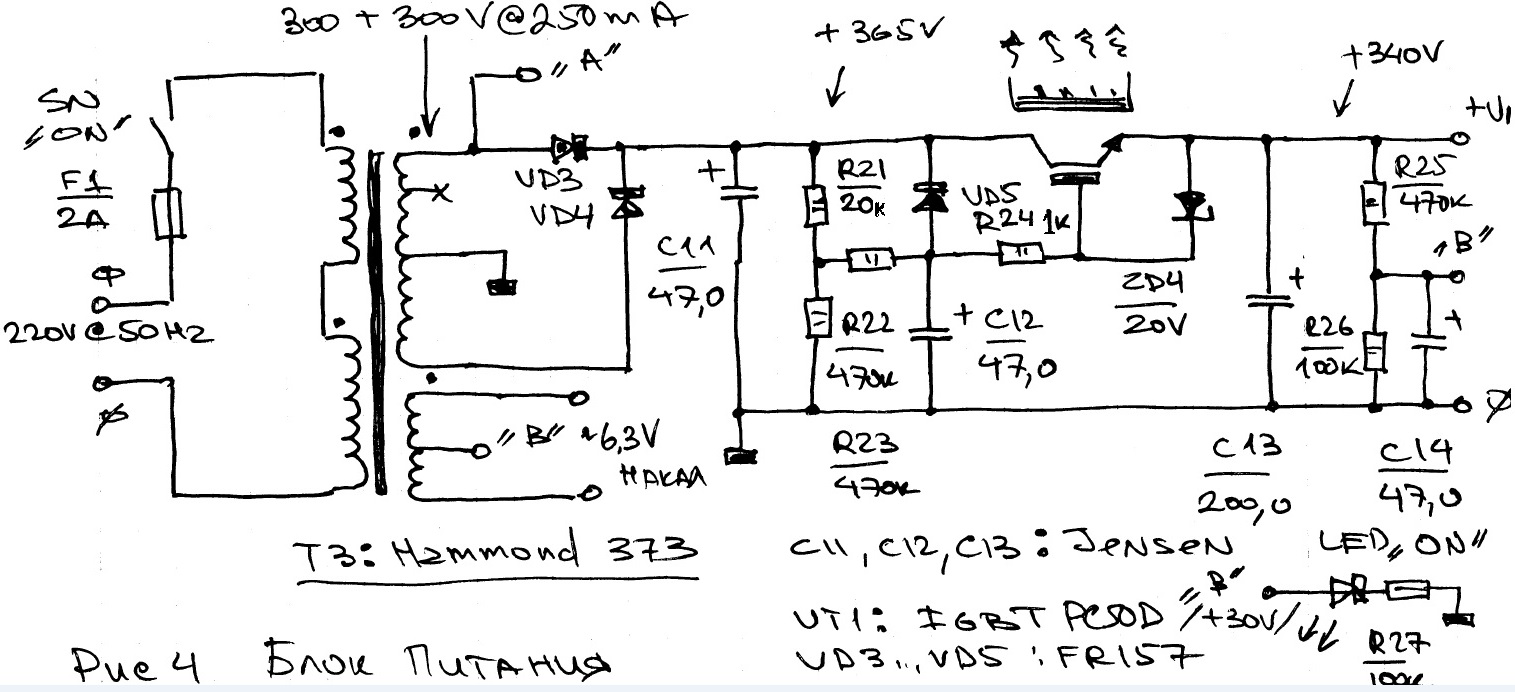 300 + 300V@250mA
„A"
+365V
+340V
+U1
SN
„ON"
F1
2A
Ф
220V@50Hz
VD3
VD4
C11
47,0
R21
20к
VD5
R24 1к
R22
470к
C12
47,0
ZD4
20V
R25
470к
„B"
R26
100к
„B" ~6,3V
НАКАЛ
R23
470к
C13
200,0
C14
47,0
T3: Hammond 373
C11, C12, C13: JENSEN
LED „ON"
„B"
/+30V/
VT1: IGBT PC50D
VD3..,VD5: FR157
R27
100к
Рис 4 Блок Питания